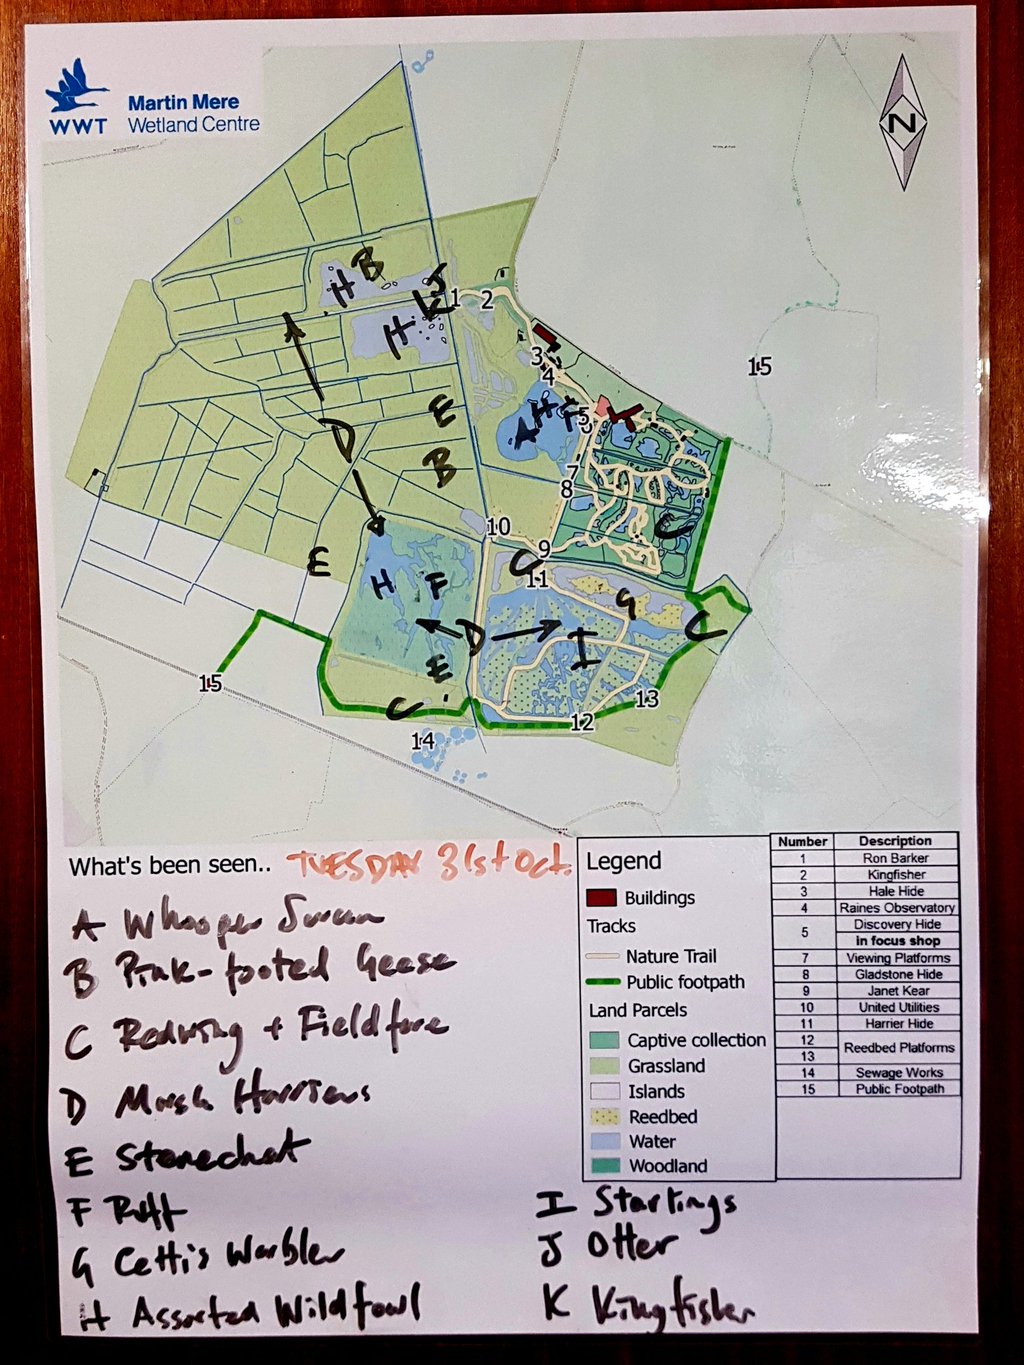 WWT
Martin Mere
Wetland Centre
N
H B
J
K
H
1 2
3
4
15
H F
A
5
E
D
B
7
8
C
10
9
E
C
11
H F
G
D
I
C
E
15
C
13
12
14
What's been seen.. TUESDAY 31st Oct.
A Whooper Swan
B Pink-footed Geese
C Redwing + Fieldfare
D Marsh Harriers
E Stonechat
F Ruff
G Cetti's Warbler
H Assorted Wildfowl
I Starlings
J Otter
K Kingfisher
Legend
Buildings
Tracks
Nature Trail
Public footpath
Land Parcels
Captive collection
Grassland
Islands
Reedbed
Water
Woodland
Number Description
1 Ron Barker
2 Kingfisher
3 Hale Hide
4 Raines Observatory
5 Discovery Hide
In focus shop
7 Viewing Platforms
8 Gladstone Hide
9 Janet Kear
10 United Utilities
11 Harrier Hide
12
13 Reedbed Platforms
14 Sewage Works
15 Public Footpath